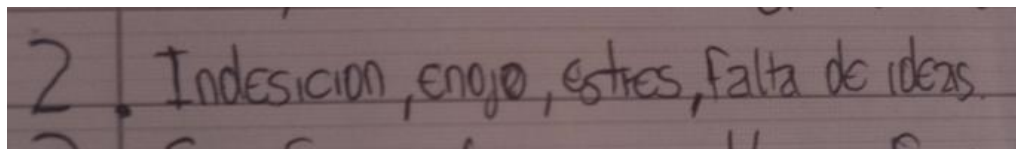 2. Indesicion, enojo, estres, falta de ideas.